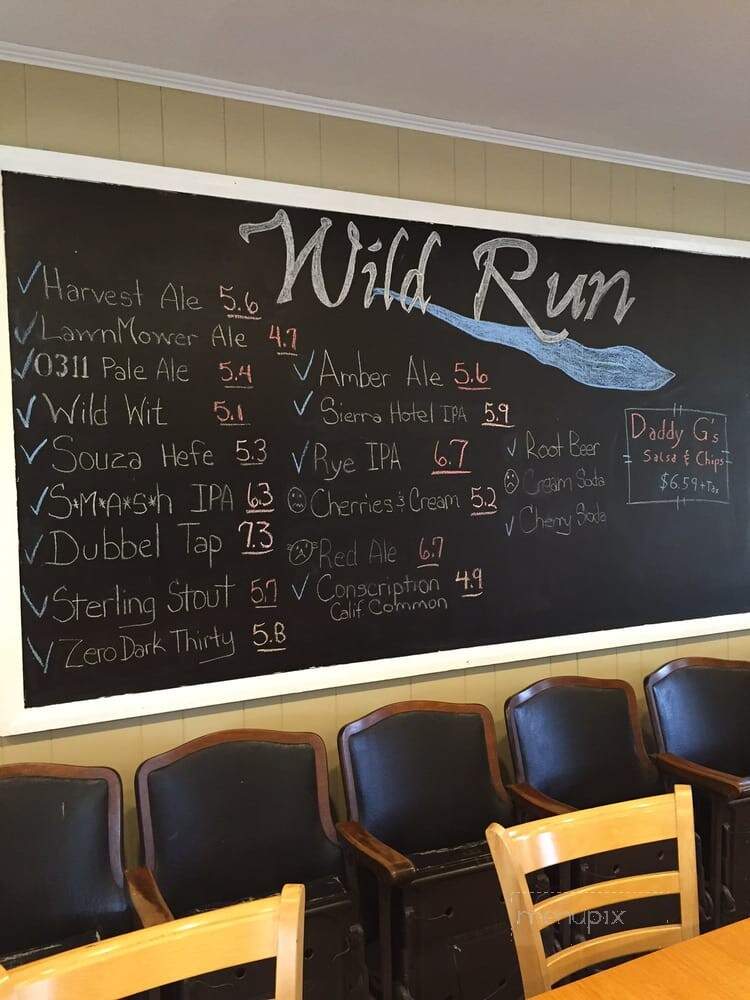 Wild Run
✓ Harvest Ale 5.6
✓ LawnMower Ale 4.7
✓ 0311 Pale Ale 5.4
✓ Wild Wit 5.1
✓ Souza Hefe 5.3
✓ S*M*A*S*h IPA 6.3
✓ Dubbel Tap 7.3
✓ Sterling Stout 5.7
✓ Zero Dark Thirty 5.8
✓ Amber Ale 5.6
✓ Sierra Hotel IPA 5.9
✓ Rye IPA 6.7
Cherries & Cream 5.2
Red Ale 6.7
✓ Conscription 4.9
Calif Common
✓ Root Beer
Cream Soda
✓ Cherry Soda
Daddy G's
Salsa & Chips
$6.59 + Tax
menupix